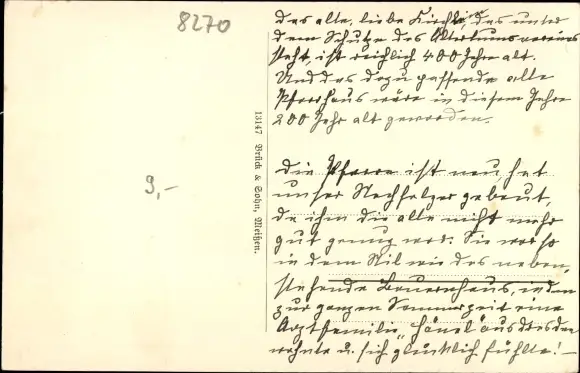 8270
das alte, liebe Kirchlein, das unter
dem Schutze des Altertumsvereins
steht, ist reichlich 400 Jahre alt.
Und das dazu passende alte
Pfarrhaus wäre in diesem Jahre
200 Jahr alt geworden.
Die Pfarre ist neu, hat
unser Nachfolger gebaut,
da ihm die alte nicht mehr
gut genug war. Sie war so
in dem Stil wie das neben-
stehende Bauernhaus, in dem
zur ganzen Sommerzeit eine
Arztfamilie Hänel aus Dresden
wohnte u. sich glücklich fühlte! –
9,–
13147 Brück & Sohn, Meißen.